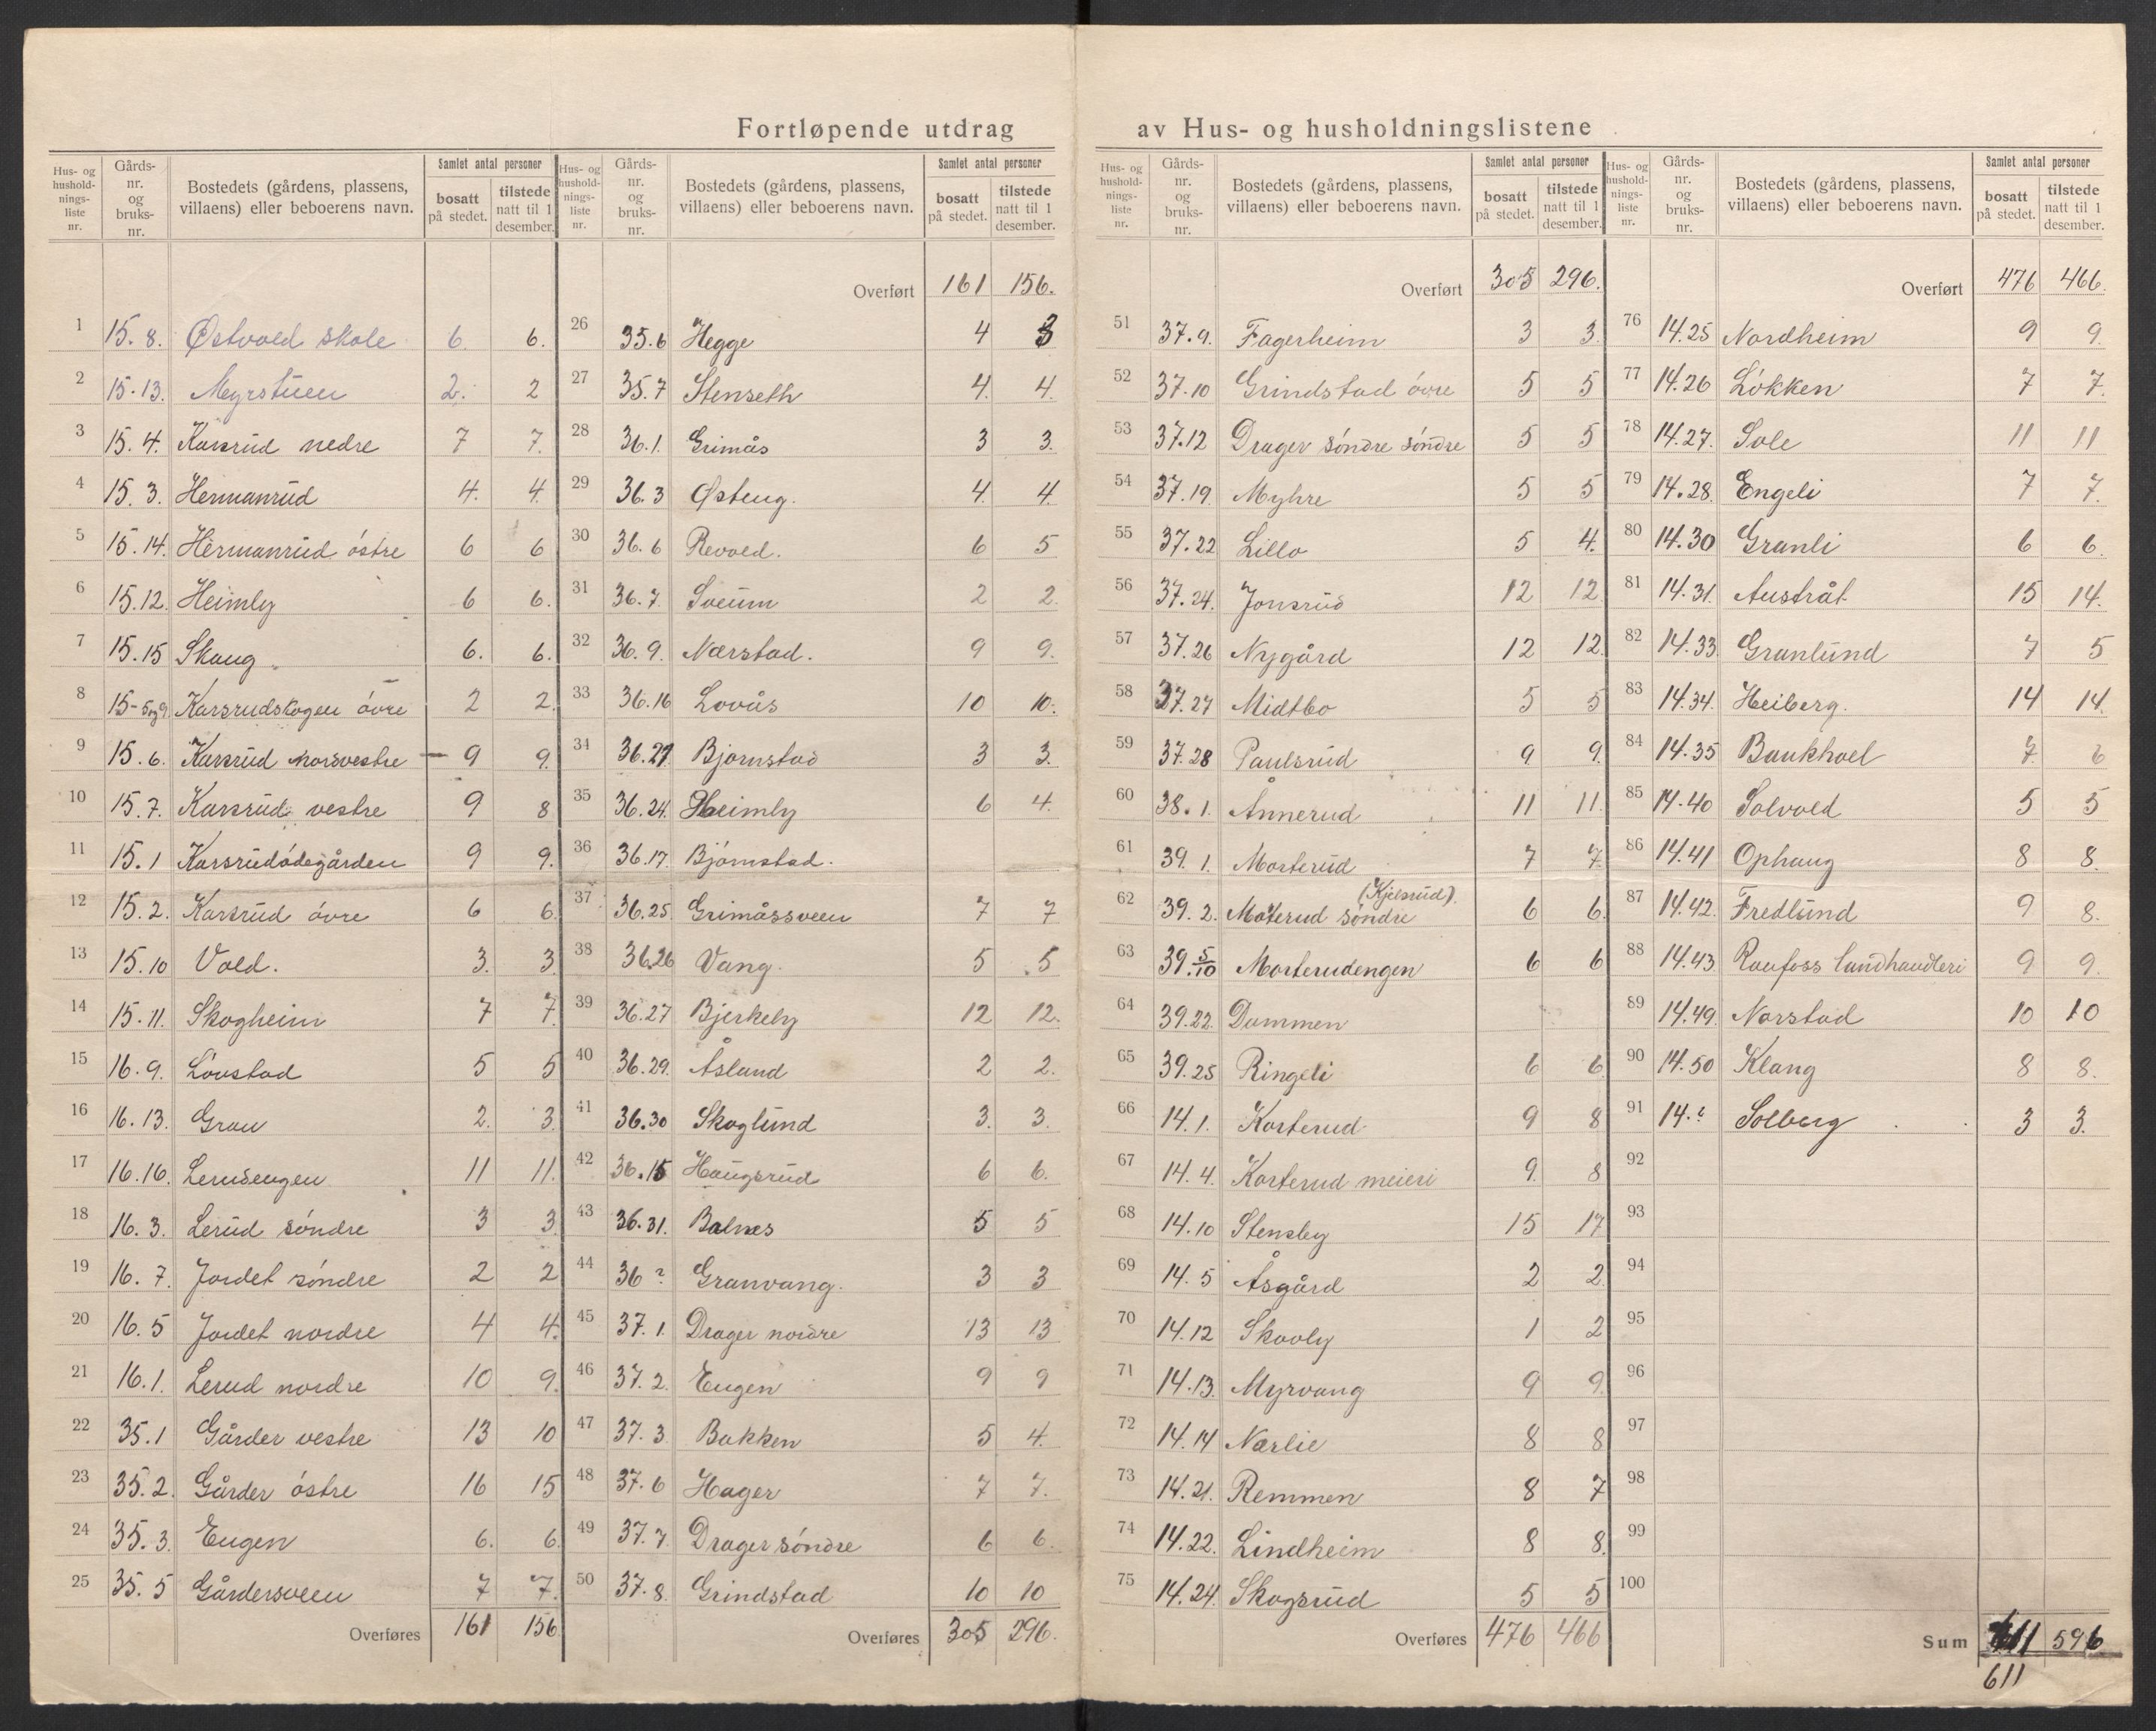 Fortløpende utdrag av Hus- og husholdningslistene
Hus- og hushold-nings-liste nr. | Gårds-nr. og bruks-nr. | Bostedets (gårdens, plassens, villaens) eller beboerens navn. | Samlet antal personer | bosatt på stedet. | tilstede natt til 1 desember.
1 15.8. Østvold skole 6 6.
2 15.13. Myrstuen 2. 2
3 15.4. Karsrud nedre 7 7.
4 15.3. Hermanrud 4. 4.
5 15.14. Hermanrud östre 6 6
6 15.12. Heimly 6 6.
7 15.15 Skaug. 6. 6.
8 15-5og9. Karsrudskogen övre 2 2.
9 15.6. Karsrud nordvestre 9 9.
10 15.7. Karsrud vestre 9 8
11 15.1 Karsrudödegården 9 9.
12 15.2. Karsrud övre 6 6.
13 15.10 Vold. 3. 3.
14 15.11. Skogheim 7 7.
15 16.9. Lövstad 5 5
16 16.13. Grau 2. 3.
17 16.16. Lerudengen 11 11.
18 16.3. Lerud söndre 3 3.
19 16.7. Jordet söndre 2 2
20 16.5 Jordet nordre 4 4.
21 16.1. Lerud nordre 10 9.
22 35.1 Gårder vestre 13 10
23 35.2. Gårder östre 16 15
24 35.3. Engen 6. 6.
25 35.5 Gårdersveen 7 7.
Overføres 161 156
Hus- og hushold-nings-liste nr. | Gårds-nr. og bruks-nr. | Bostedets (gårdens, plassens, villaens) eller beboerens navn. | Samlet antal personer | bosatt på stedet. | tilstede natt til 1 desember.
Overført 161 156.
26 35.6 Hegge 4 3
27 35.7 Stenseth 4. 4.
28 36.1. Grimås 3 3.
29 36.3 Østeng. 4. 4.
30 36.6 Revold. 6 5
31 36.7. Sveum 2 2.
32 36.9. Nærstad. 9 9.
33 36.16 Lovås 10 10.
34 36.21. Bjornstad 3 3.
35 36.24. Heimly 6 4.
36 36.17. Björnstad.
37 36.25. Grimåssveen 7 7
38 36.26 Vang. 5 5
39 36.27 Bjerkely 12 12.
40 36.29. Åsland 2 2.
41 36.30 Skoglund 3. 3.
42 36.15 Haugsrud 6 6.
43 36.31. Balnes 5 5
44 36 ? Granvang. 3 3
45 37.1. Drager nordre 13 13
46 37.2. Engen 9 9
47 37.3 Bakken 5 4.
48 37.6 Hager 7 7.
49 37.7. Drager söndre 6 6.
50 37.8. Grindstad 10 10
Overføres 305 296.
Hus- og hushold-nings-liste nr. | Gårds-nr. og bruks-nr. | Bostedets (gårdens, plassens, villaens) eller beboerens navn. | Samlet antal personer | bosatt på stedet. | tilstede natt til 1 desember.
Overført 305 296.
51 37.9. Fagerheim 3 3.
52 37.10 Grindstad övre 5 5
53 37.12 Drager söndre söndre 5 5
54 37.19. Myhre 5 5
55 37.22 Lillo 5 4.
56 37.24. Jonsrud 12 12
57 37.26 Nygård 12 12.
58 37.27 Midtbo 5 5
59 37.28 Paulsrud 9. 9.
60 38.1. Ånnerud 11 11.
61 39.1. Morterud 7 7.
62 39.2. Moterud söndre (Kjelsrud). 6 6.
63 39.5/10 Morterudengen 6 6
64 39.22. Dammen
65 39.25 Ringeli 6 6.
66 14.1. Korterud 9 8
67 14.4. Korterud meieri 9. 8
68 14.10 Stensby 15 17
69 14.5 Åsgård 2 2.
70 14.12 Skovly 1 2
71 14.13. Myrvang 9 9.
72 14.14 Nærlie 8 8
73 14.21. Remmen 8 7
74 14.22. Lindheim 8 8.
75 14.24. Skogsrud 5 5
Overføres 476 466
Hus- og hushold-nings-liste nr. | Gårds-nr. og bruks-nr. | Bostedets (gårdens, plassens, villaens) eller beboerens navn. | Samlet antal personer | bosatt på stedet. | tilstede natt til 1 desember.
Overført 476 466.
76 14.25 Nordheim 9 9.
77 14.26 Lökken 7 7.
78 14.27. Sole 11 11
79 14.28. Engeli 7 7.
80 14.30 Granli 6 6.
81 14.31. Austråt 15 14.
82 14.33. Granlund 7 5
83 14.34. Heiberg. 14 14.
84 14.35 Baukhoel 7. 6
85 14.40 Solvold 5 5
86 14.41 Ophaug 8 8.
87 14.42. Fredlund 9 8.
88 14.43 Raufoss landhandleri 9 9.
89 14.49. Norstad 10 10
90 14.50 Klang 8 8.
91 14.? Solberg 3 3.
92
93
94
95
96
97
98
99
100
Sum 611 596
611